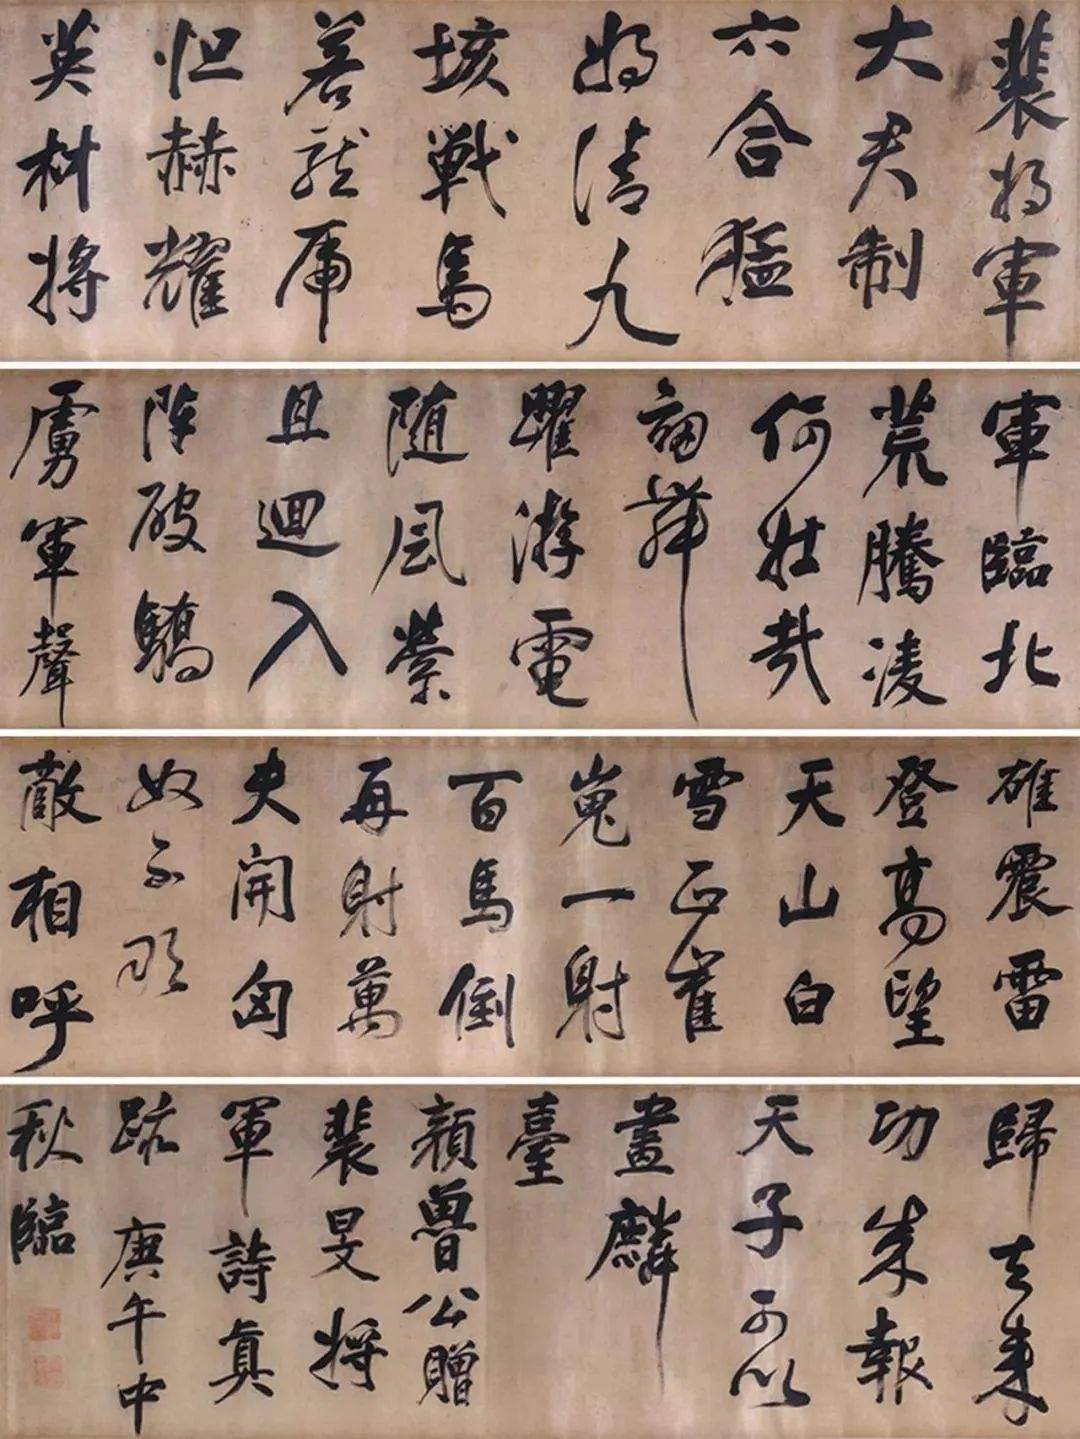 裴将軍
大君制
六合猛
将清九
垓戰馬
若龍虎
怛赫耀
英材將
軍臨北
荒騰凌
何壯哉
劒舞
躍游電
随風縈
且迴入
陣破驕
虜軍聲
雄震雷
登高望
天山白
雪正崔
嵬一射
百馬倒
再射萬
夫開匈
奴不敢
敵相呼
歸去来
功成報
天子可以
畫麟
臺
顏魯公贈
裴旻将
軍詩真
跡庚午中
秋臨